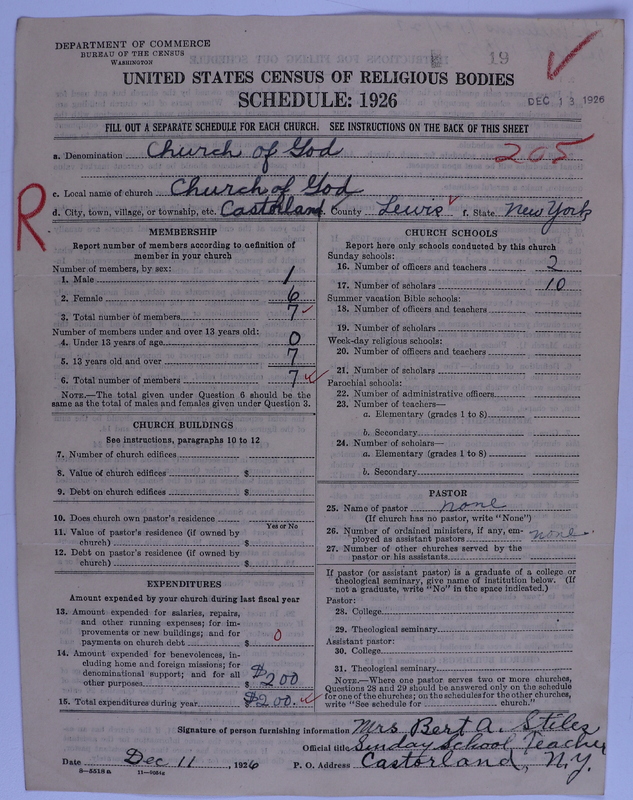 DEPARTMENT OF COMMERCE
BUREAU OF THE CENSUS
WASHINGTON
19
UNITED STATES CENSUS OF RELIGIOUS BODIES
SCHEDULE: 1926
DEC 13 1926
FILL OUT A SEPARATE SCHEDULE FOR EACH CHURCH. SEE INSTRUCTIONS ON THE BACK OF THIS SHEET
a. Denomination Church of God
205
c. Local name of church Church of God
R
d. City, town, village, or township, etc. Castorland e. County Lewis f. State New York
MEMBERSHIP
Report number of members according to definition of
member in your church
Number of members, by sex:
1. Male 1
2. Female 6
3. Total number of members 7
Number of members under and over 13 years old:
4. Under 13 years of age 0
5. 13 years old and over 7
6. Total number of members 7
NOTE.—The total given under Question 6 should be
same as the total of males and females given under Question 3.
CHURCH BUILDINGS
See instructions, paragraphs 10 to 12
7. Number of church edifices
8. Value of church edifices $
9. Debt on church edifices $
10. Does church own pastor's residence
Yes or No
11. Value of pastor's residence (if owned by
church) $
12. Debt on pastor's residence (if owned by
church) $
EXPENDITURES
Amount expended by your church during last fiscal year
13. Amount expended for salaries, repairs,
and other running expenses; for im-
provements or new buildings; and for
payments on church debt $ 0
14. Amount expended for benevolences, in-
cluding home and foreign missions; for
denominational support; and for all
other purposes $2.00
15. Total expenditures during year $2.00
CHURCH SCHOOLS
Report here only schools conducted by this church
Sunday schools:
16. Number of officers and teachers 2
17. Number of scholars 10
Summer vacation Bible schools:
18. Number of officers and teachers
19. Number of scholars
Week-day religious schools:
20. Number of officers and teachers
21. Number of scholars
Parochial schools:
22. Number of administrative officers
23. Number of teachers—
a. Elementary (grades 1 to 8)
b. Secondary
24. Number of scholars—
a. Elementary (grades 1 to 8)
b. Secondary
PASTOR
25. Name of pastor none
(If church has no pastor, write "None")
26. Number of ordained ministers, if any, em-
ployed as assistant pastors none
27. Number of other churches served by the
pastor or his assistants
If pastor (or assistant pastor) is a graduate of a college or
theological seminary, give name of institution below. (If
not a graduate, write "No" in the space indicated.)
Pastor:
28. College
29. Theological seminary
Assistant pastor:
30. College
31. Theological seminary
NOTE.—Where one pastor serves two or more churches,
Questions 28 and 29 should be answered only on the schedule
for one of the churches; on the schedules for the other churches,
write "See schedule for church."
Signature of person furnishing information Mrs Bert A. Stiles
Official title Sunday School Teacher
Date Dec 11, 1926 P. O. Address Castorland, N.Y.
8—5518 a 11—9034a